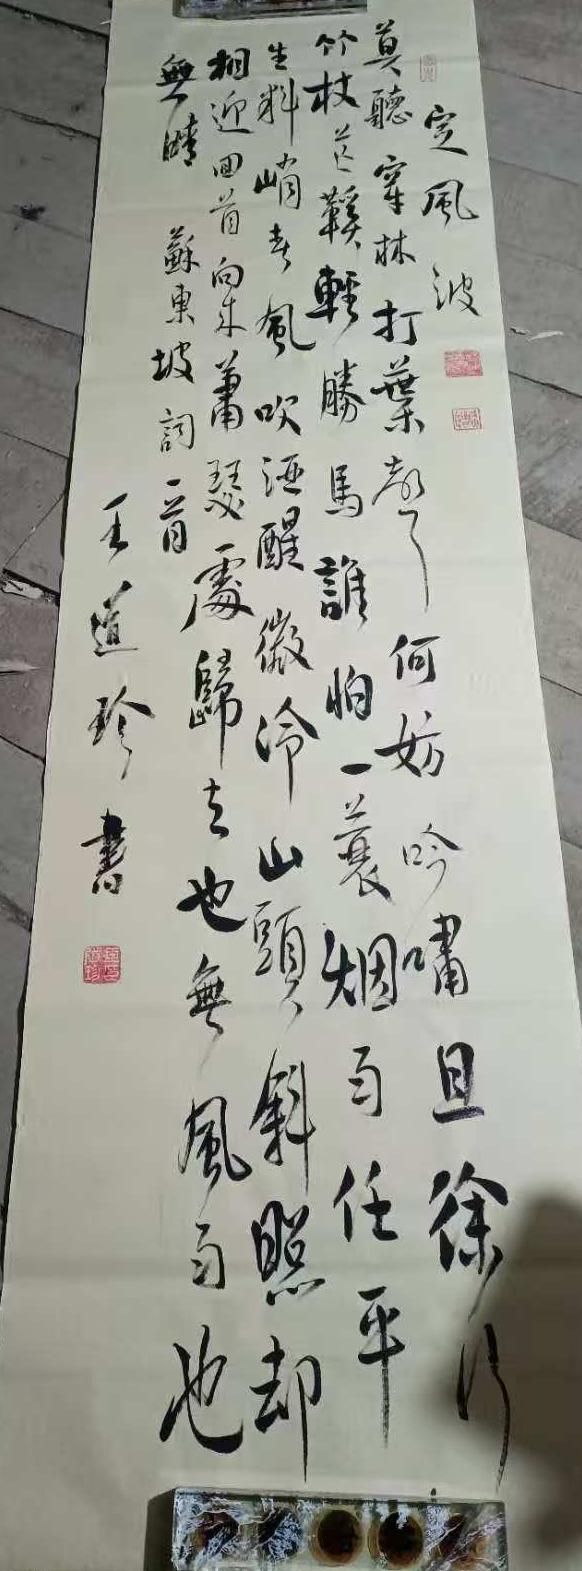 定風波
莫聽穿林打葉聲何妨吟嘯且徐行
竹杖芒鞋輕勝馬誰怕一蓑烟雨任平
生料峭春風吹酒醒微冷山頭斜照却
相迎回首向來蕭瑟處歸去也無風雨也
無晴 蘇東坡詞一首
王道珍書